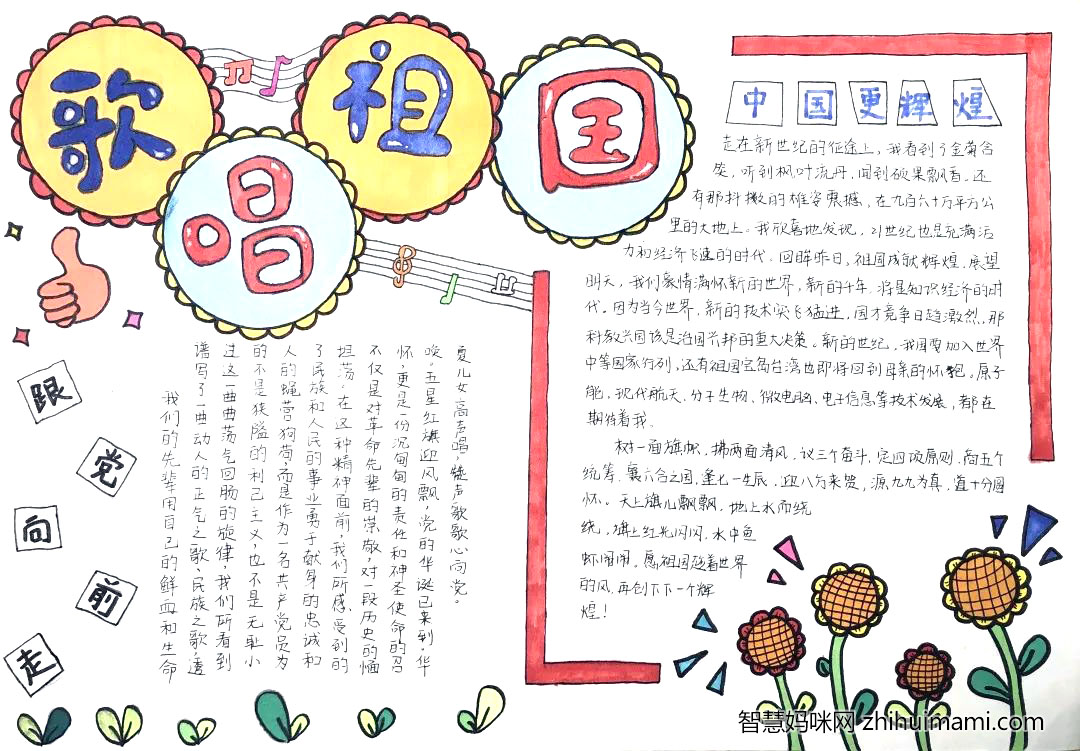 歌唱祖国
跟党向前走
我们的先辈用自己的鲜血和生命
谱写了一曲动人的正气之歌、民族之歌，透
过这一曲曲荡气回肠的旋律，我们所看到
的不是狭隘的利己主义，也不是无耻小
人的蝇营狗苟，而是作为一名共产党员为
了民族和人民的事业勇于献身的忠诚和
坦荡。在这种精神面前，我们所感受到的
不仅是对革命先辈的崇敬，对一段历史的缅
怀，更是一份沉甸甸的责任和神圣使命的召
唤。五星红旗迎风飘，党的华诞已来到。华
夏儿女高声唱，声声歌歌心向党。
中国更辉煌
走在新世纪的征途上，我看到了金菊含
笑，听到枫叶流丹，闻到硕果飘香。还
有那抖擞的雄姿震撼，在九百六十万平方公
里的大地上。我欣喜地发现，21世纪也是充满活
力和经济飞速的时代。回眸昨日，祖国成就辉煌。展望
明天，我们豪情满怀新的世界，新的千年。将是知识经济的时
代。因为当今世界，新的技术突飞猛进，国才竞争日趋激烈，那
科教兴国该是治国兴邦的重大决策。新的世纪，我国要加入世界
中等国家行列，还有祖国宝岛台湾也即将回到母亲的怀抱。原子
能，现代航天，分子生物、微电脑、电子信息等技术发展，都在
期待着我。
树一面旗帜，拂两面清风，议三个奋斗，定四项原则，高五个
统筹，襄六合之国，逢七一生辰，迎八方来贺，源九九为真，值十分圆
怀。天上旗儿飘飘，地上水而绕
绕，旗上红光闪闪，水中鱼
虾闹闹。愿祖国趁着世界
的风，再创下下一个辉
煌！
智慧妈咪网 zhihuimami.com